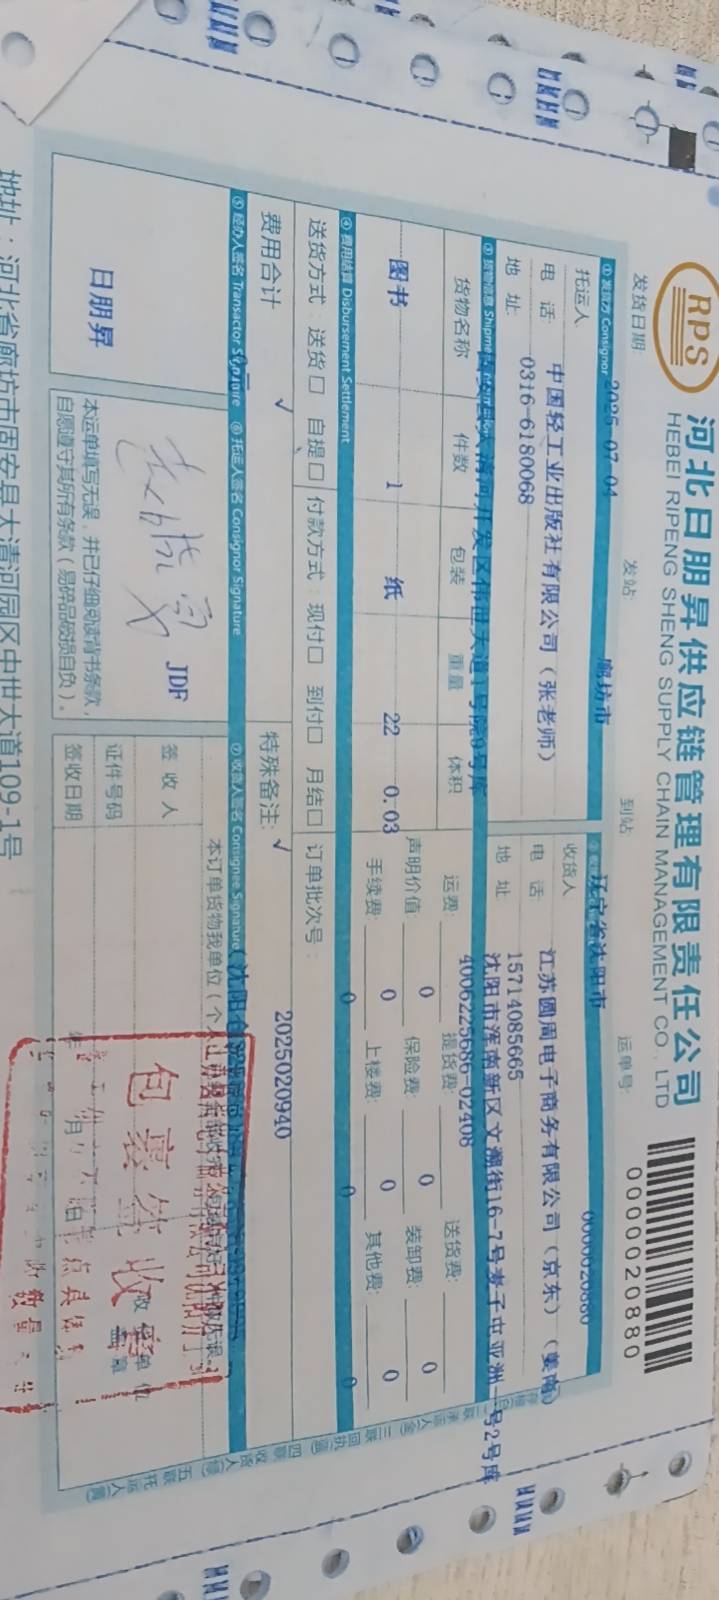 RPS
河北日朋昇供应链管理有限责任公司
HEBEI RIPENG SHENG SUPPLY CHAIN MANAGEMENT CO., LTD
0000020880
发货日期: 2025-07-04 发站: 廊坊市 到站: 辽宁省沈阳市 运单号: 0000020880
① 发货方 Consignor
托运人: 中国轻工业出版社有限公司（张老师）
电 话: 0316-6180068
地 址:
收货人: 江苏圆周电子商务有限公司（京东）（姜南）
电 话: 15714085665
4006225686-02408
地 址: 沈阳市浑南新区文溯街16-7号麦子屯亚洲一号2号库
③ 货物信息
货物名称 件数 包装 重量 体积
图书 1 纸 22 0.03
运费: 提货费: 送货费:
声明价值: 0 保险费: 0 装卸费: 0
手续费: 0 上楼费: 0 其他费: 0
④ 费用结算 Disbursement Settlement
0 0 0
送货方式: 送货□ 自提□ 付款方式: 现付□ 到付□ 月结□ 订单批次号:
费用合计 √ 特殊备注: √ 2025020940
⑤ 经办人签名 Transactor Signature ⑥ 托运人签名 Consignor Signature ⑦ 收货人签名 Consignee Signature
日朋昇
JDF
本运单填写无误，并已仔细阅读背书条款，
自愿遵守其所有条款（易碎品破损自负）。
本订单货物我单位（个人）
签 收 人
证件号码
签收日期 年 月
包裹签收章
二联承运人
三联回执
四联收货人
五联托运人
地址：河北省廊坊市固安县大清河园区中世大道109-1号